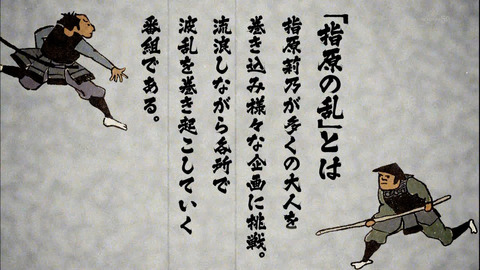 「指原の乱」とは
指原莉乃が多くの大人を
巻き込み様々な企画に挑戦。
流浪しながら各所で
波乱を巻き起こしていく
番組である。